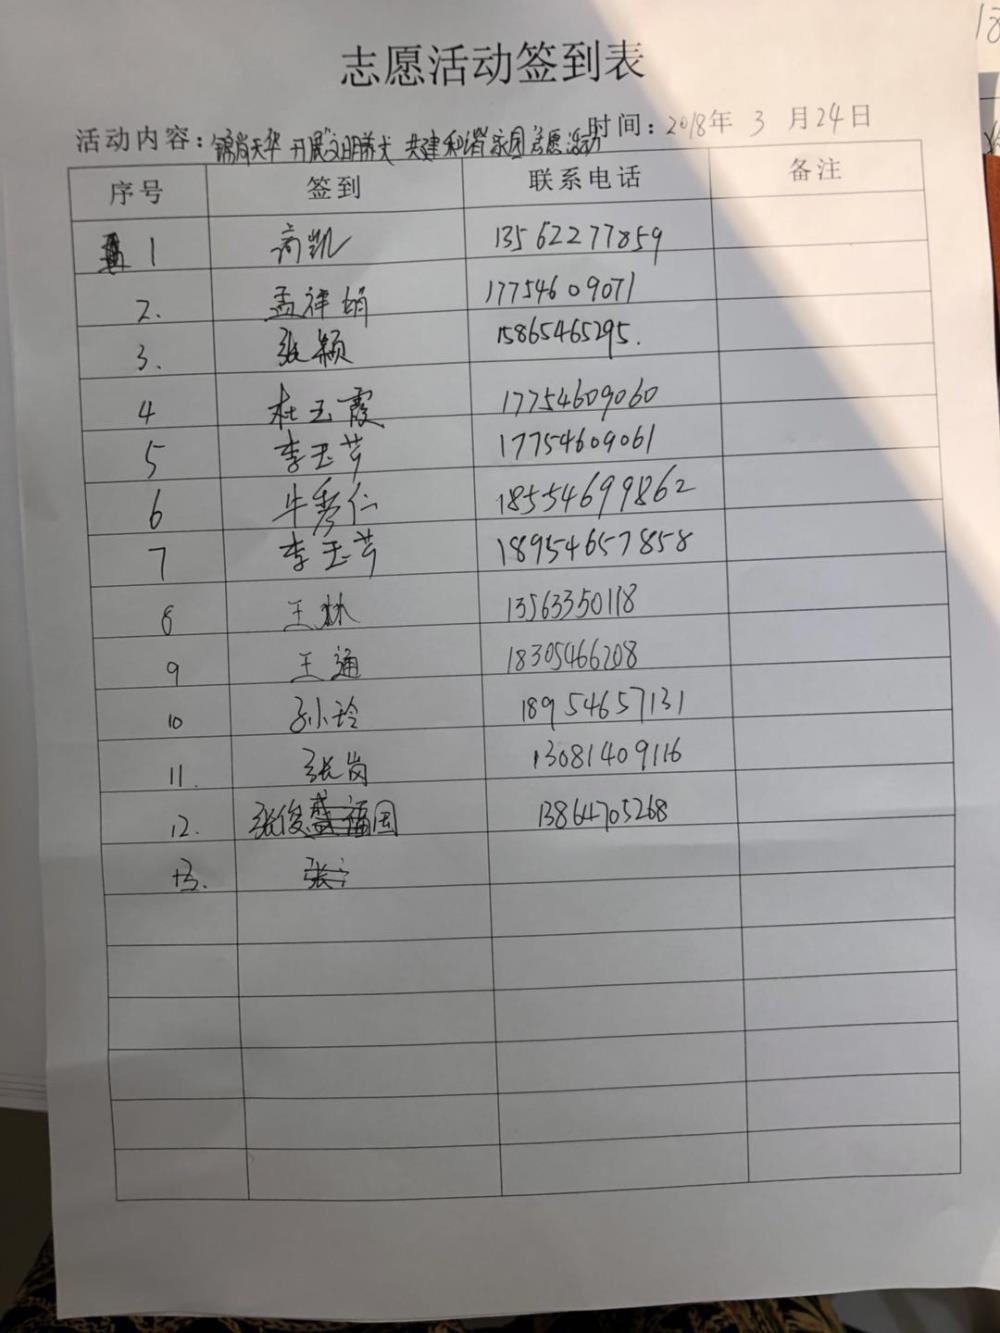 志愿活动签到表
活动内容：锦尚天华 开展"文明养犬 共建和谐家园"志愿活动 时间：2018年 3 月24日
序号 签到 联系电话 备注
1 商凯 13562277859
2. 孟祥娟 17754609071
3. 张颖 15865465295.
4 杜玉霞 17754609060
5 李玉芹 17754609061
6 牛秀仁 18554699862
7 李玉芹 18954657858
8 王林 13563350118
9 王通 18305466208
10 孙小玲 18954657131
11. 张岗 13081409116
12. 张俊国 13864705268
13. 张